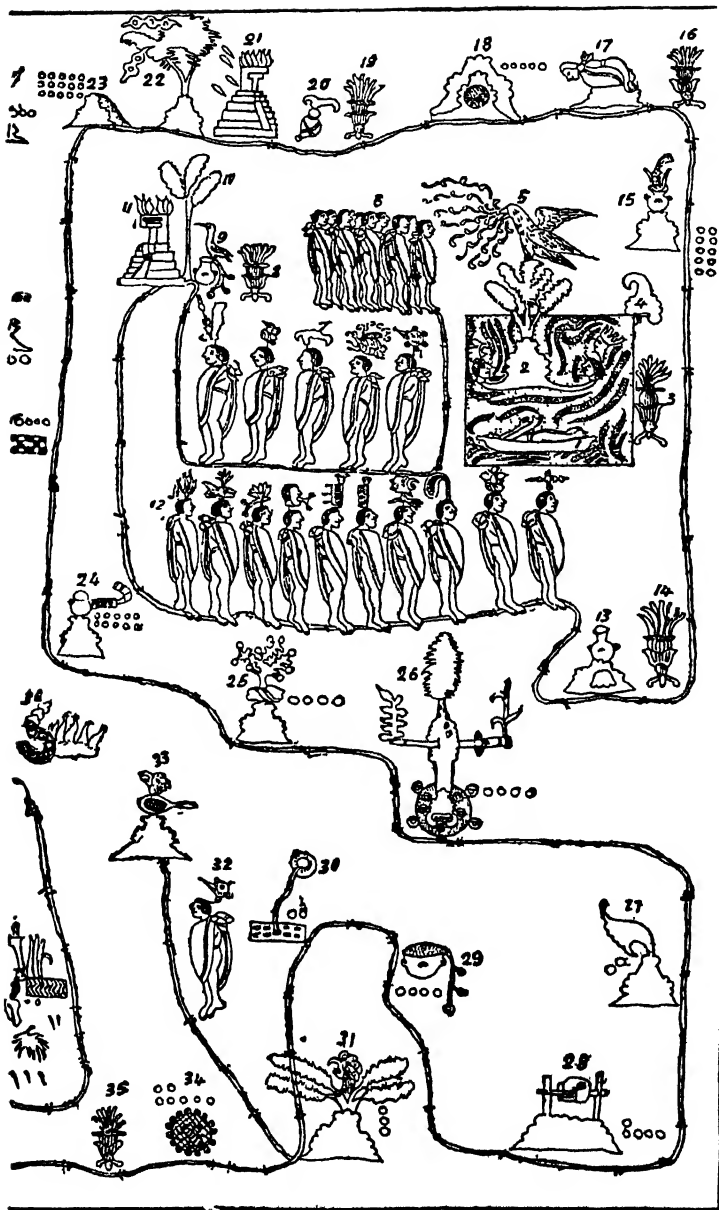 21
22
23
20
19
18
17
16
10
11
9
8
5
15
4
2
3
12
24
13
14
25
26
33
32
30
29
27
31
28
35
34